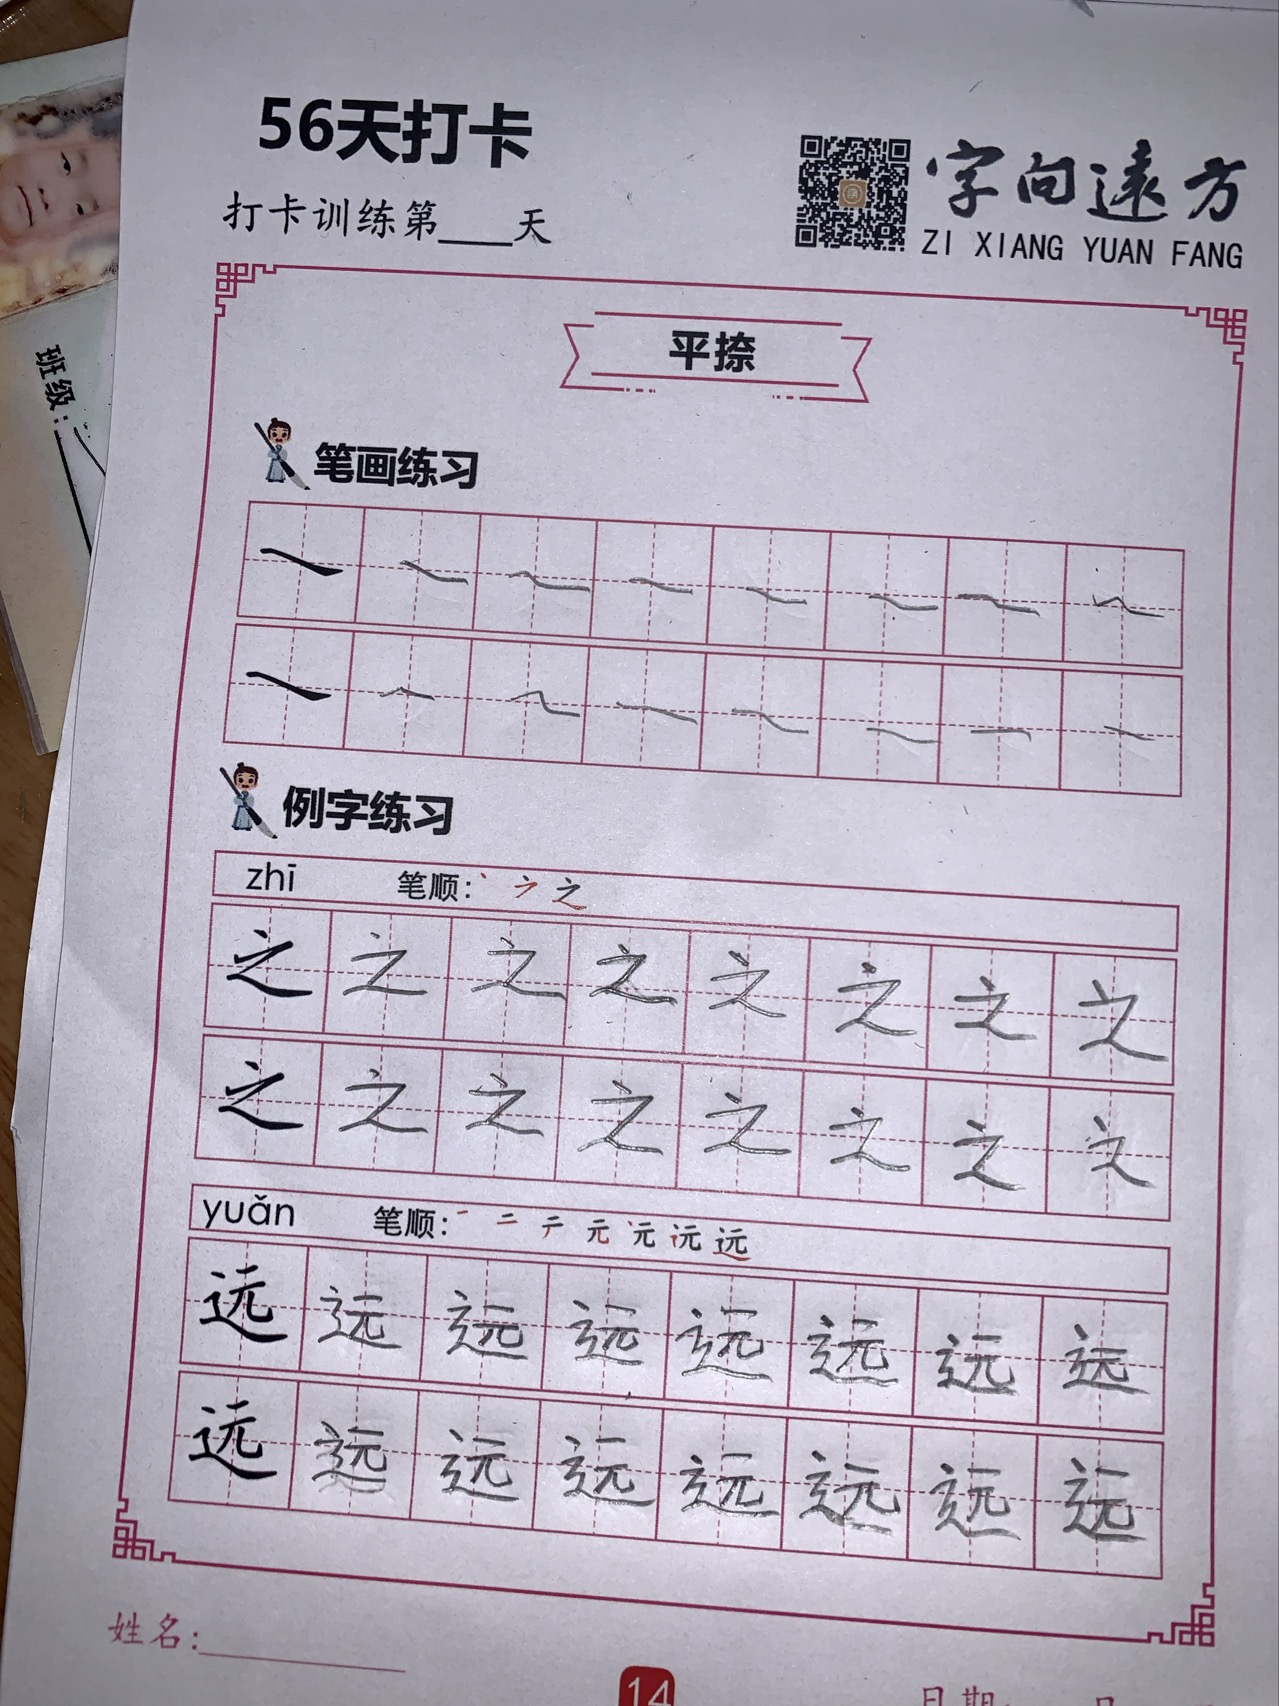 56天打卡
打卡训练第____天
字向遠方
ZI XIANG YUAN FANG
班级:
平捺
笔画练习
例字练习
zhī 笔顺:
之 之 之 之 之 之 之 之
之 之 之 之 之 之 之 之
yuǎn 笔顺: 一 二 テ 元 元 远 远
远 远 远 远 远 远 远 远
远 远 远 远 远 远 远 远
姓名:
14
日期: